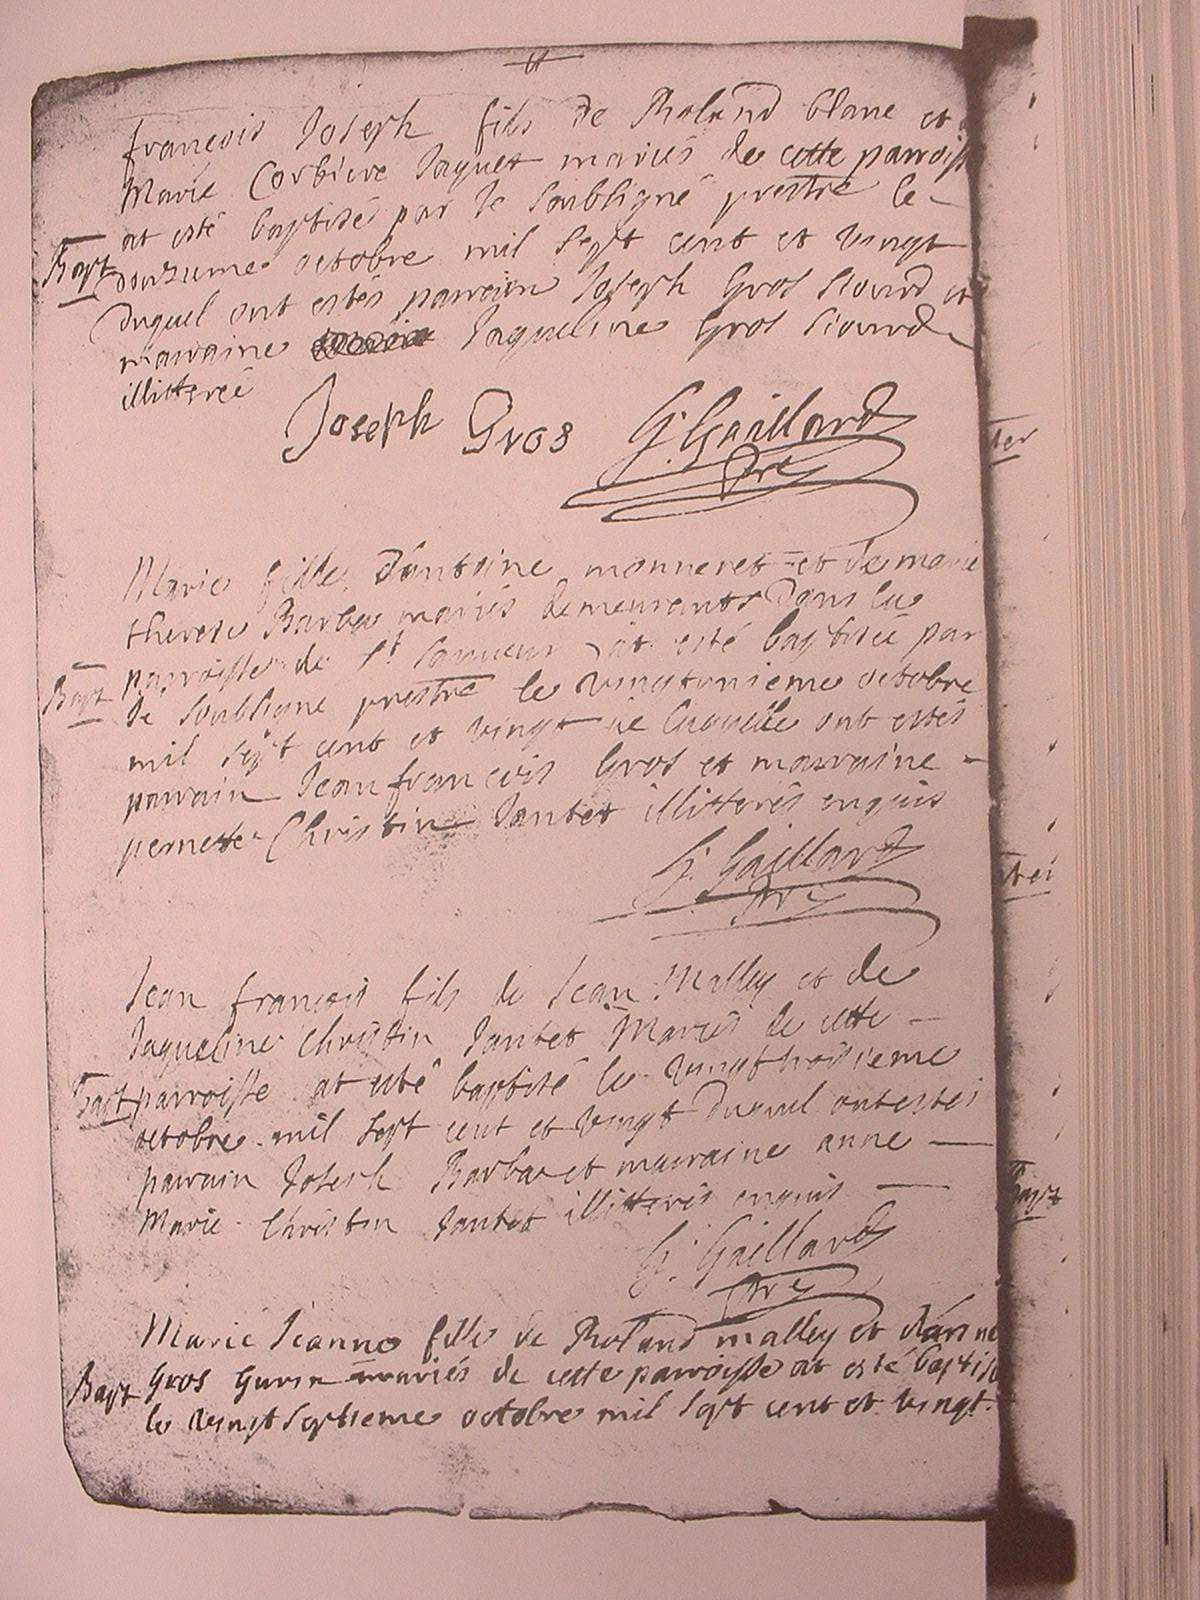 françois Joseph fils de Roland blanc et
Marie Corbiere Jaquet mariés de cette parroisse
at esté baptisé par le soubsigné prestre le
Bapt onzieme octobre mil sept cent et vingt
duquel ont estés parrain Joseph Gros Siourd et
marraine Jaqueline Gros Siourd
illitteré
Joseph Gros G. Gaillard
pre
Marie fille d'Antoine monneret et de marie
therese Barbaz mariés demeurants dans la
parroisse de St Sauveur at esté baptisée par
Bapt le soubsigne prestre le vingtunieme octobre
mil sept cent et vingt de laquelle ont estés
parrain Jean françois Gros et marraine
pernette Christin Jantet illitterés enquis
G. Gaillard
pre
Jean françois fils de Jean Malley et de
Jaqueline Christin Jantet Mariés de cette
Bapt parroisse at esté baptisé le vingttroisieme
octobre mil sept cent et vingt duquel ont estés
parrain Joseph Barbaz et marraine anne
Marie Christin Jantet illitterés enquis
G. Gaillard
pre
Marie Jeanne fille de Roland malley et d'Anne
Bapt Gros Gurin mariés de cette parroisse at esté baptisé
le vingt septieme octobre mil sept cent et vingt.